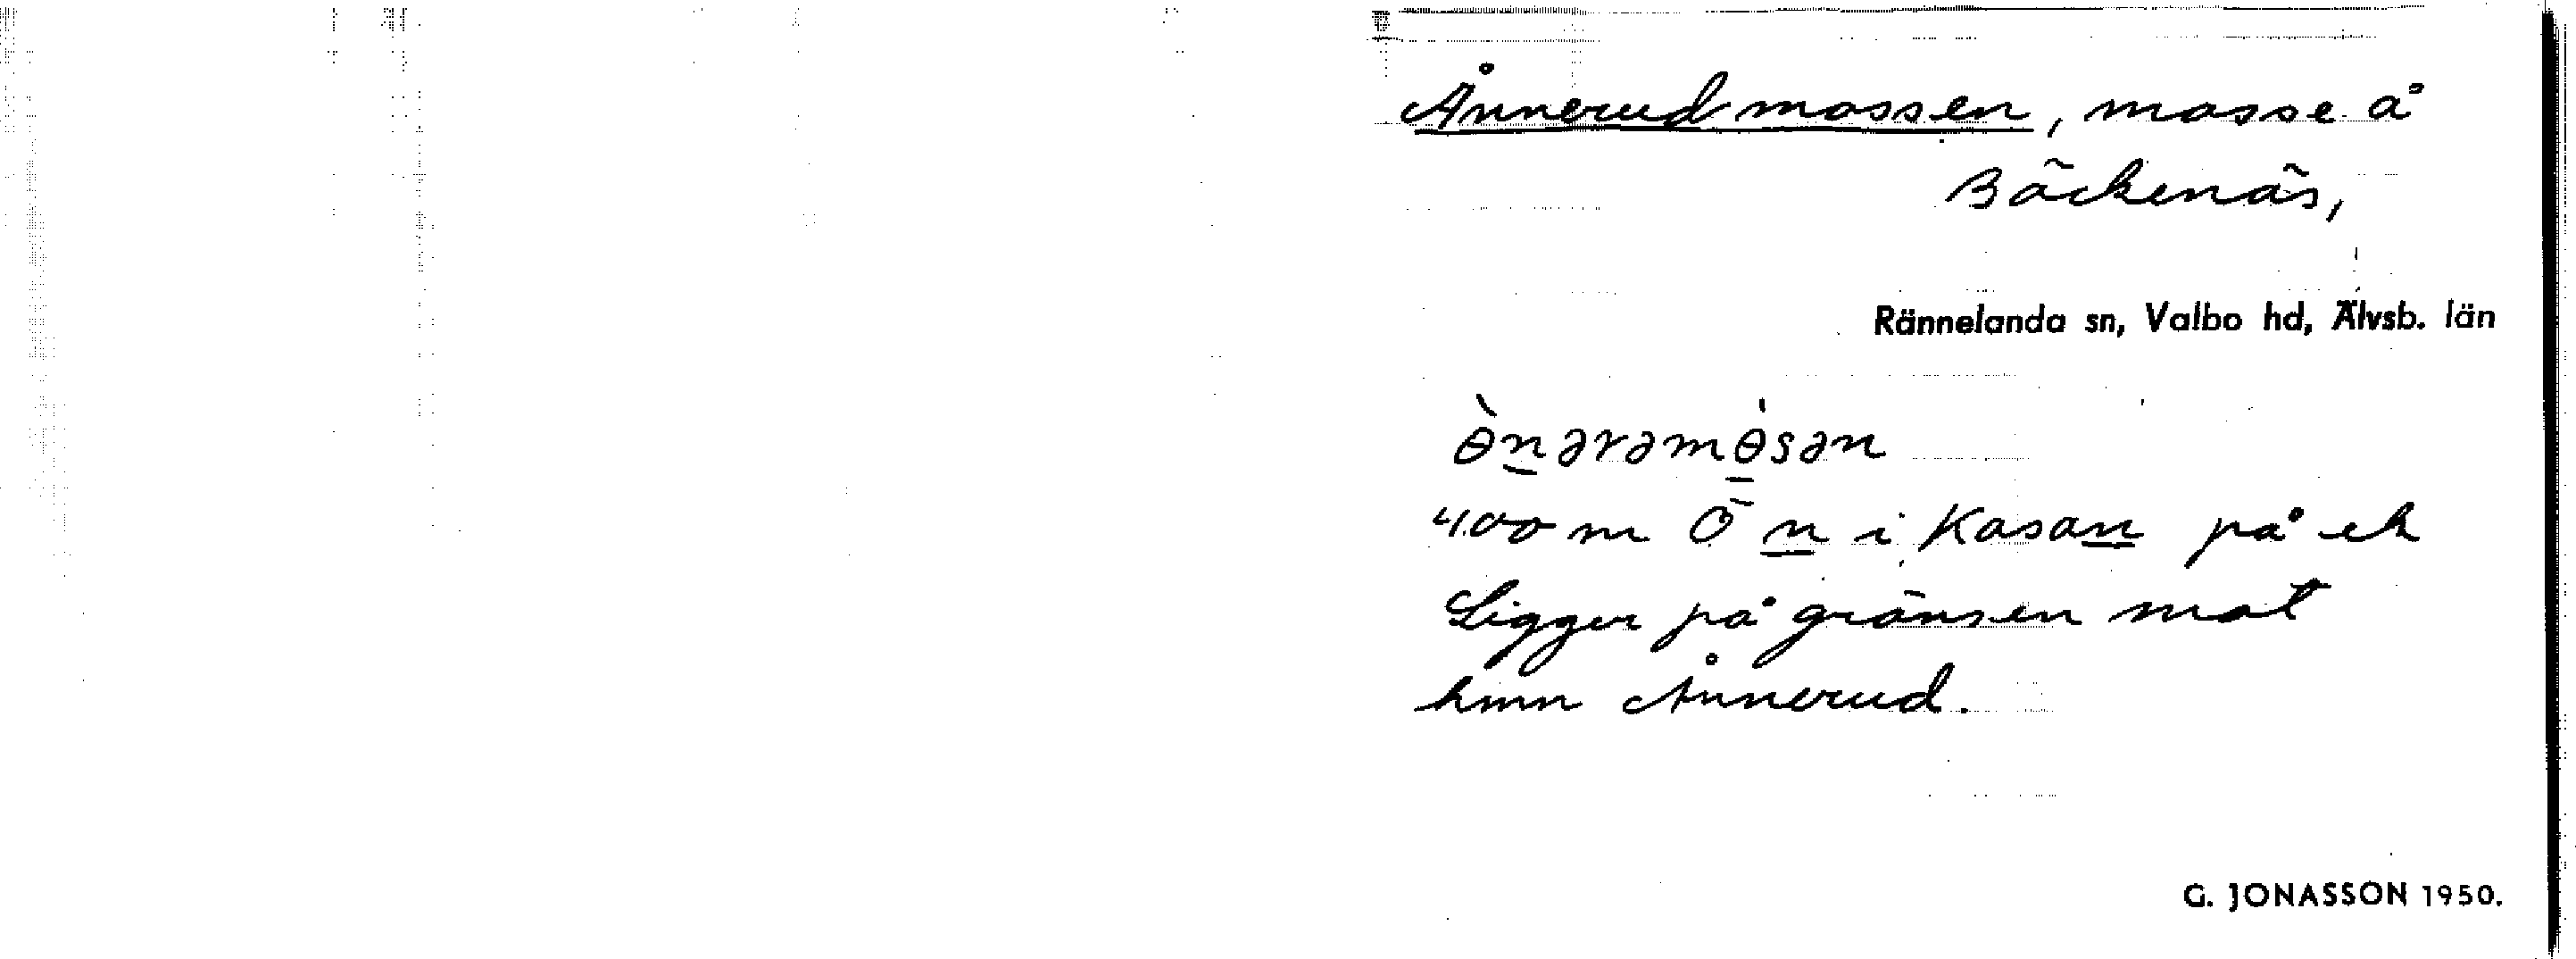 Ånnerudmossen, mosse å
Bäckenäs,
Rännelanda sn, Valbo hd, Älvsb. län
ɵ̀nərəmɵ̍sən
400 m Ö n i Kasan på ek
Ligger på gränsen mot
hmn Ånnerud.
G. JONASSON 1950.